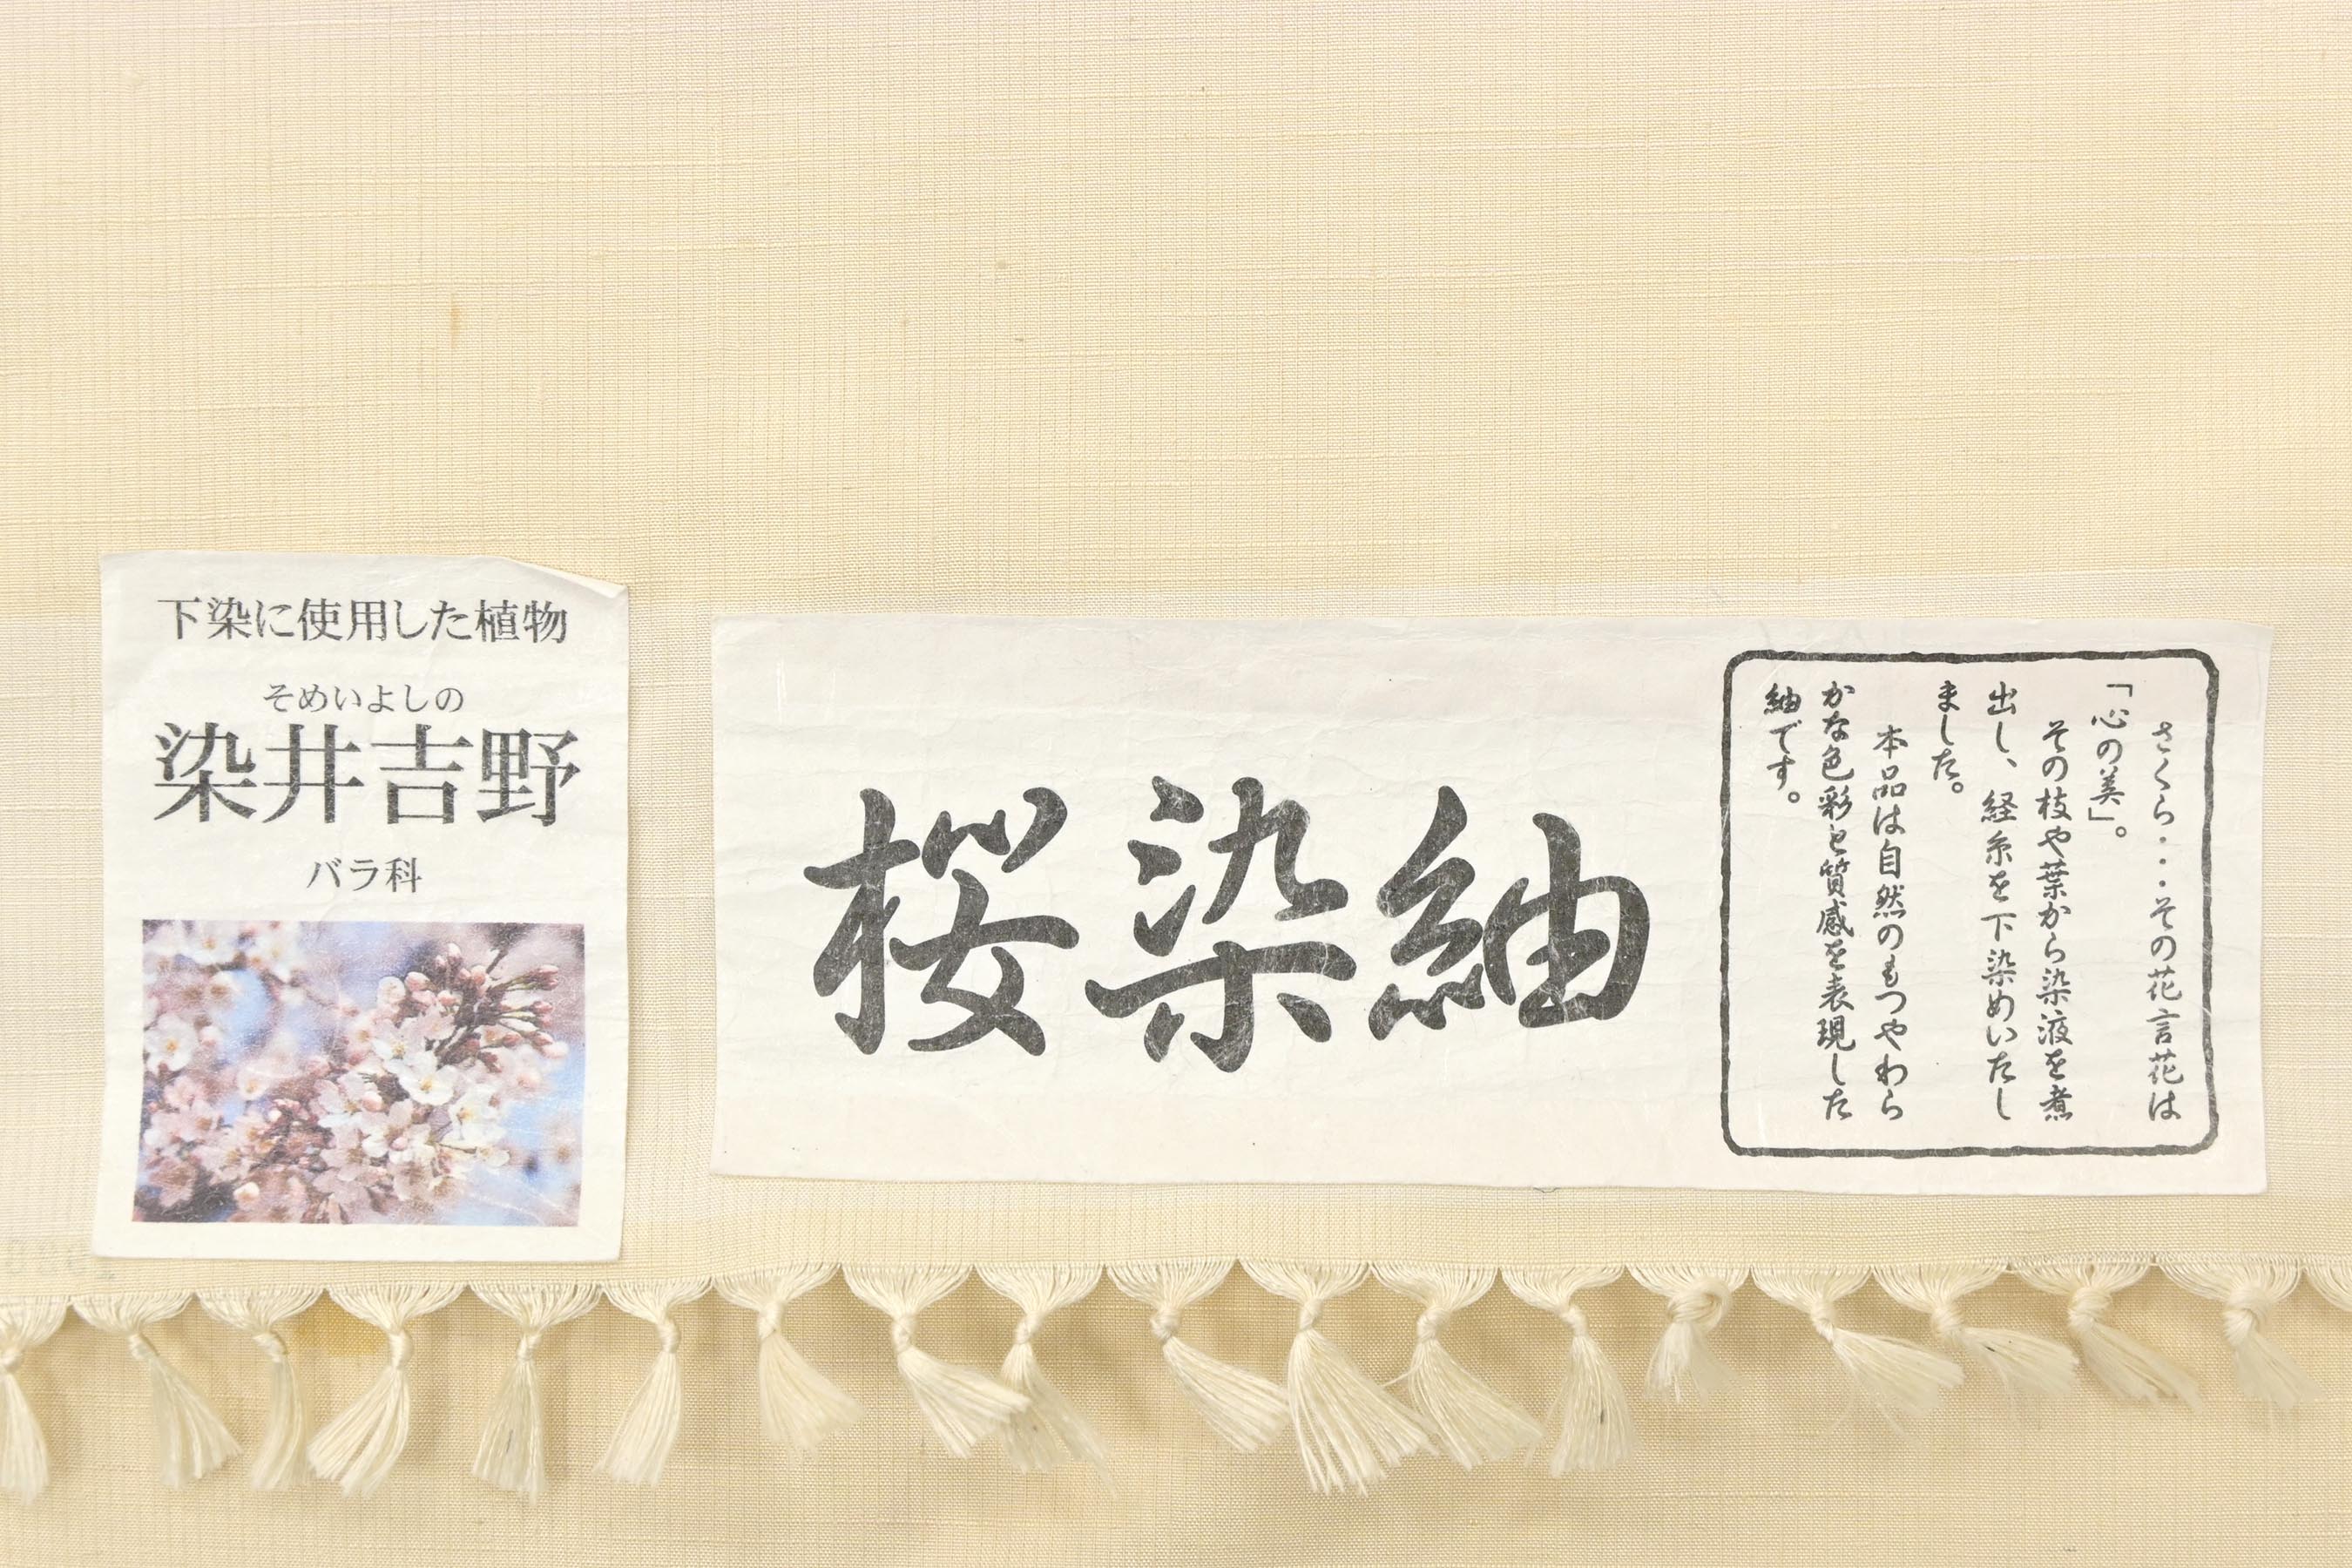 下染に使用した植物
そめいよしの
染井吉野
バラ科
桜染紬
さくら・・・その花言花は
「心の美」。
その枝や葉から染液を煮
出し、経糸を下染めいたし
ました。
本品は自然のもつやわら
かな色彩と質感を表現した
紬です。